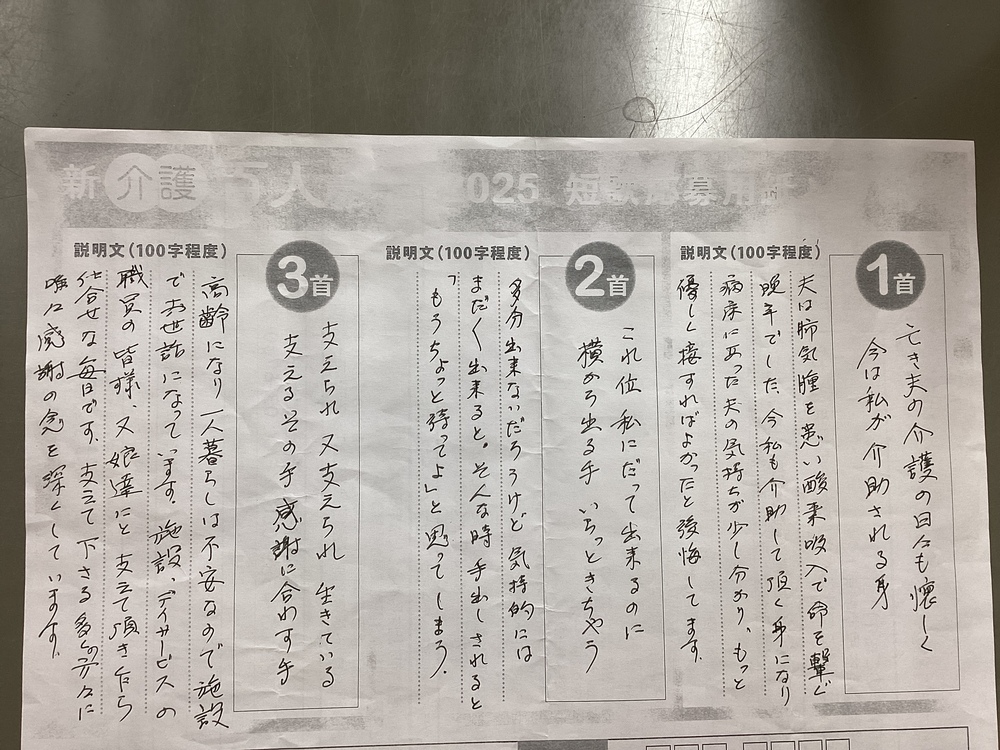 新介護百人一首2025 短歌応募用紙
1首
亡き夫の介護の日々も懐しく
今は私が介助される身
説明文(100字程度)
夫は肺気腫を患い酸素吸入で命を繋ぐ
晩年でした。今私も介助して頂く身になり
病床にあった夫の気持ちが少し分かり、もっと
優しく接すればよかったと後悔してます。
2首
これ位 私にだって出来るのに
横から出る手 いらっときちゃう
説明文(100字程度)
多分出来ないだろうけど 気持的には
まだ〱出来ると。そんな時手出しされると
「もうちょっと待ってよ」と思ってしまう。
3首
支えられ 又支えられ 生きている
支えるその手 感謝に合わす手
説明文(100字程度)
高齢になり一人暮らしは不安なので施設
でお世話になっています。施設、デイサービスの
職員の皆様、又娘達にと支えて頂き乍ら
仕合せな毎日です。支えて下さる多くの方々に
唯々感謝の念を深くしています。